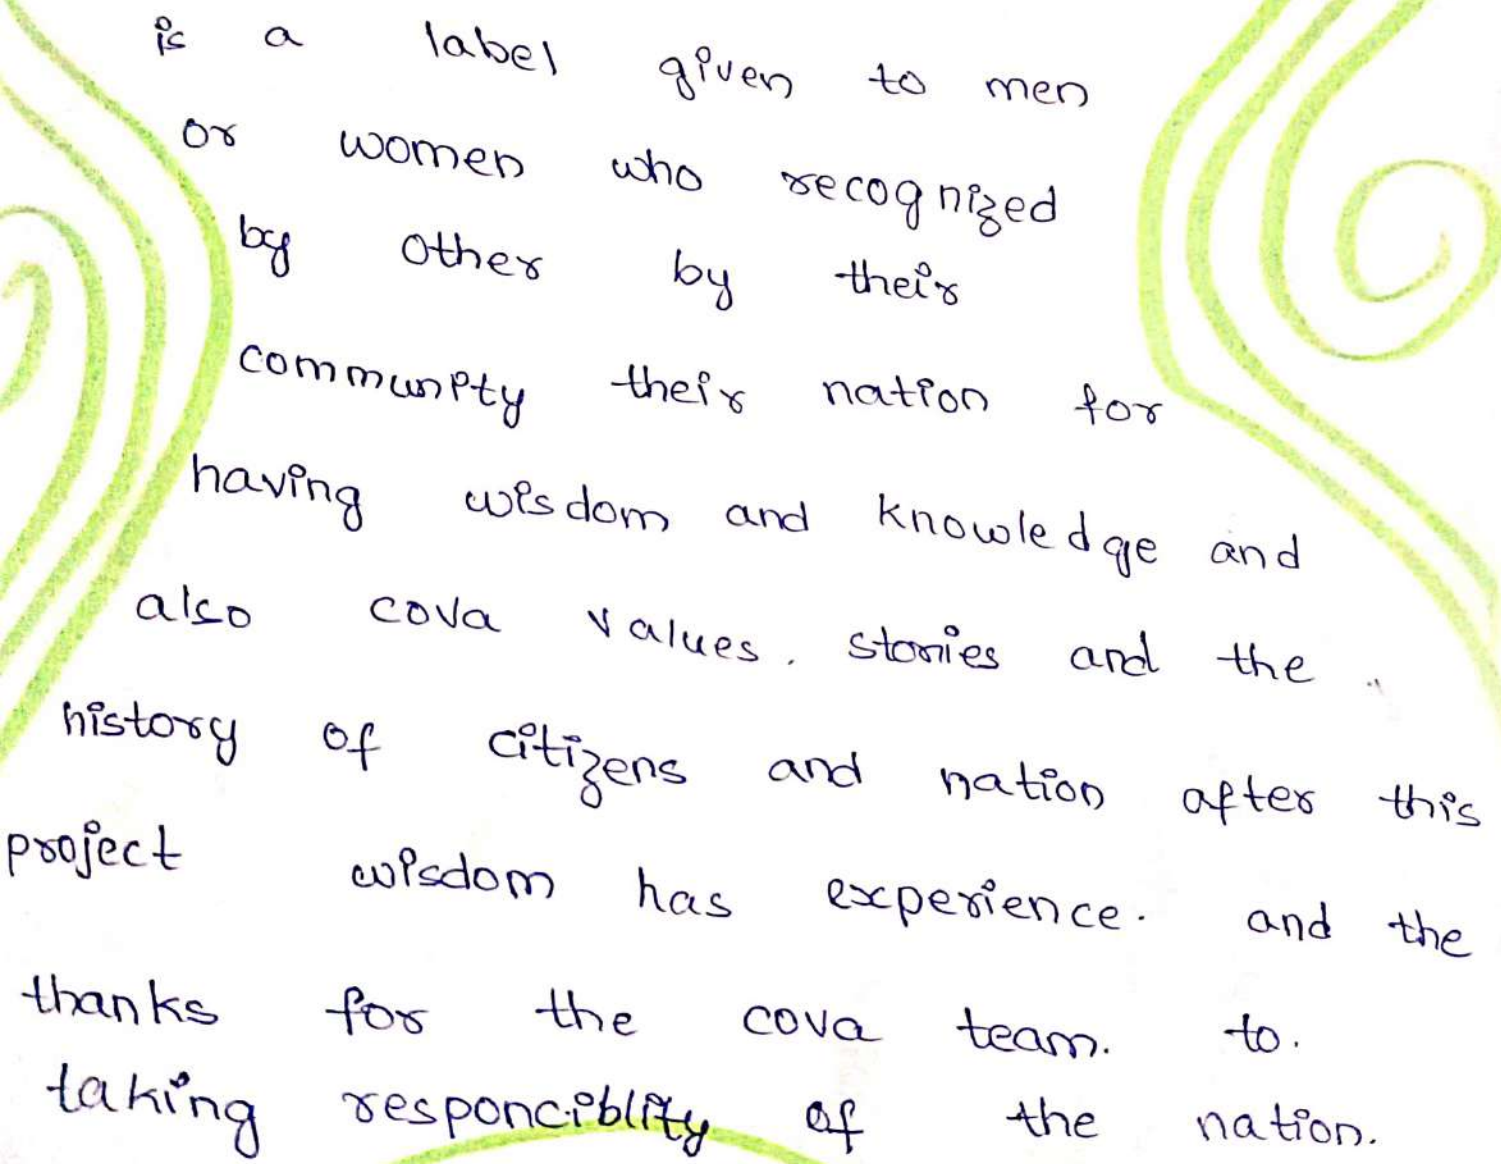 is a label given to men
or women who recognized
by other by their
community their nation for
having wisdom and knowledge and
also cova values. stories and the
history of citizens and nation after this
project wisdom has experience. and the
thanks for the cova team. to.
taking responciblity of the nation.